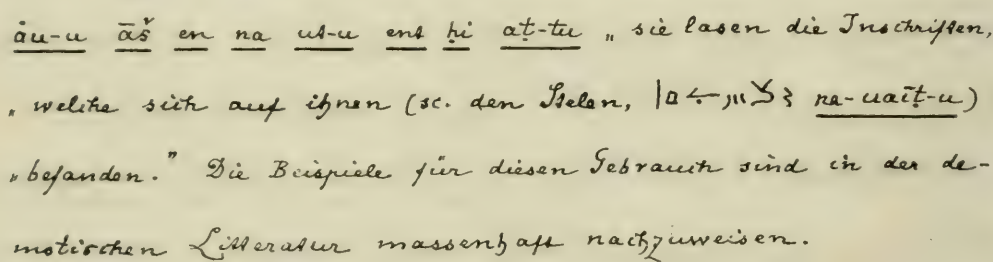 åu-u āš en na us-u ent ḥi aṭ-tu „sie lasen die Inschriften,
„welche sich auf ihnen (sc. den Stelen, na-uaīṭ-u)
„befanden.” Die Beispiele für diesen Gebrauch sind in der de-
motischen Litteratur massenhaft nachzuweisen.